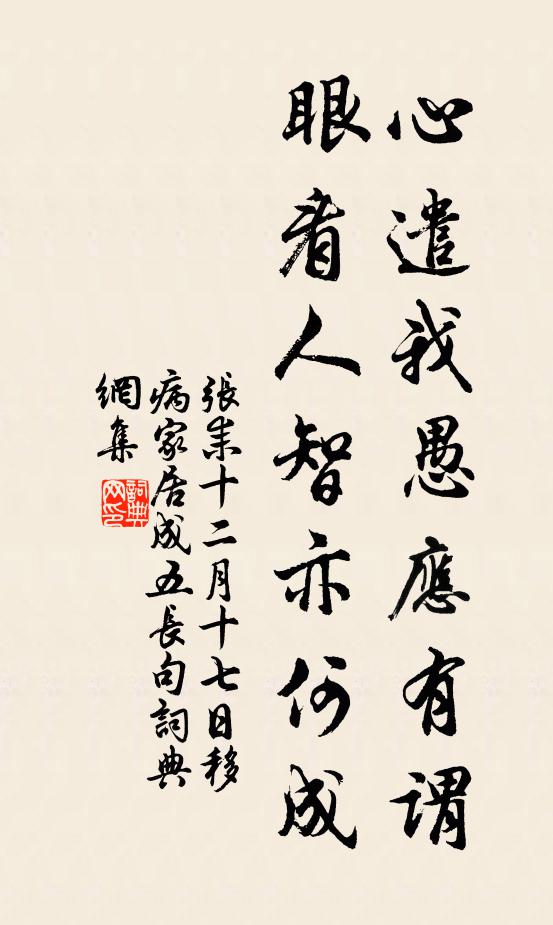 心遣我愚應有謂
眼看人智亦何成
張耒十二月十七日移
病家居成五長句詞典
網集
詞典
网印